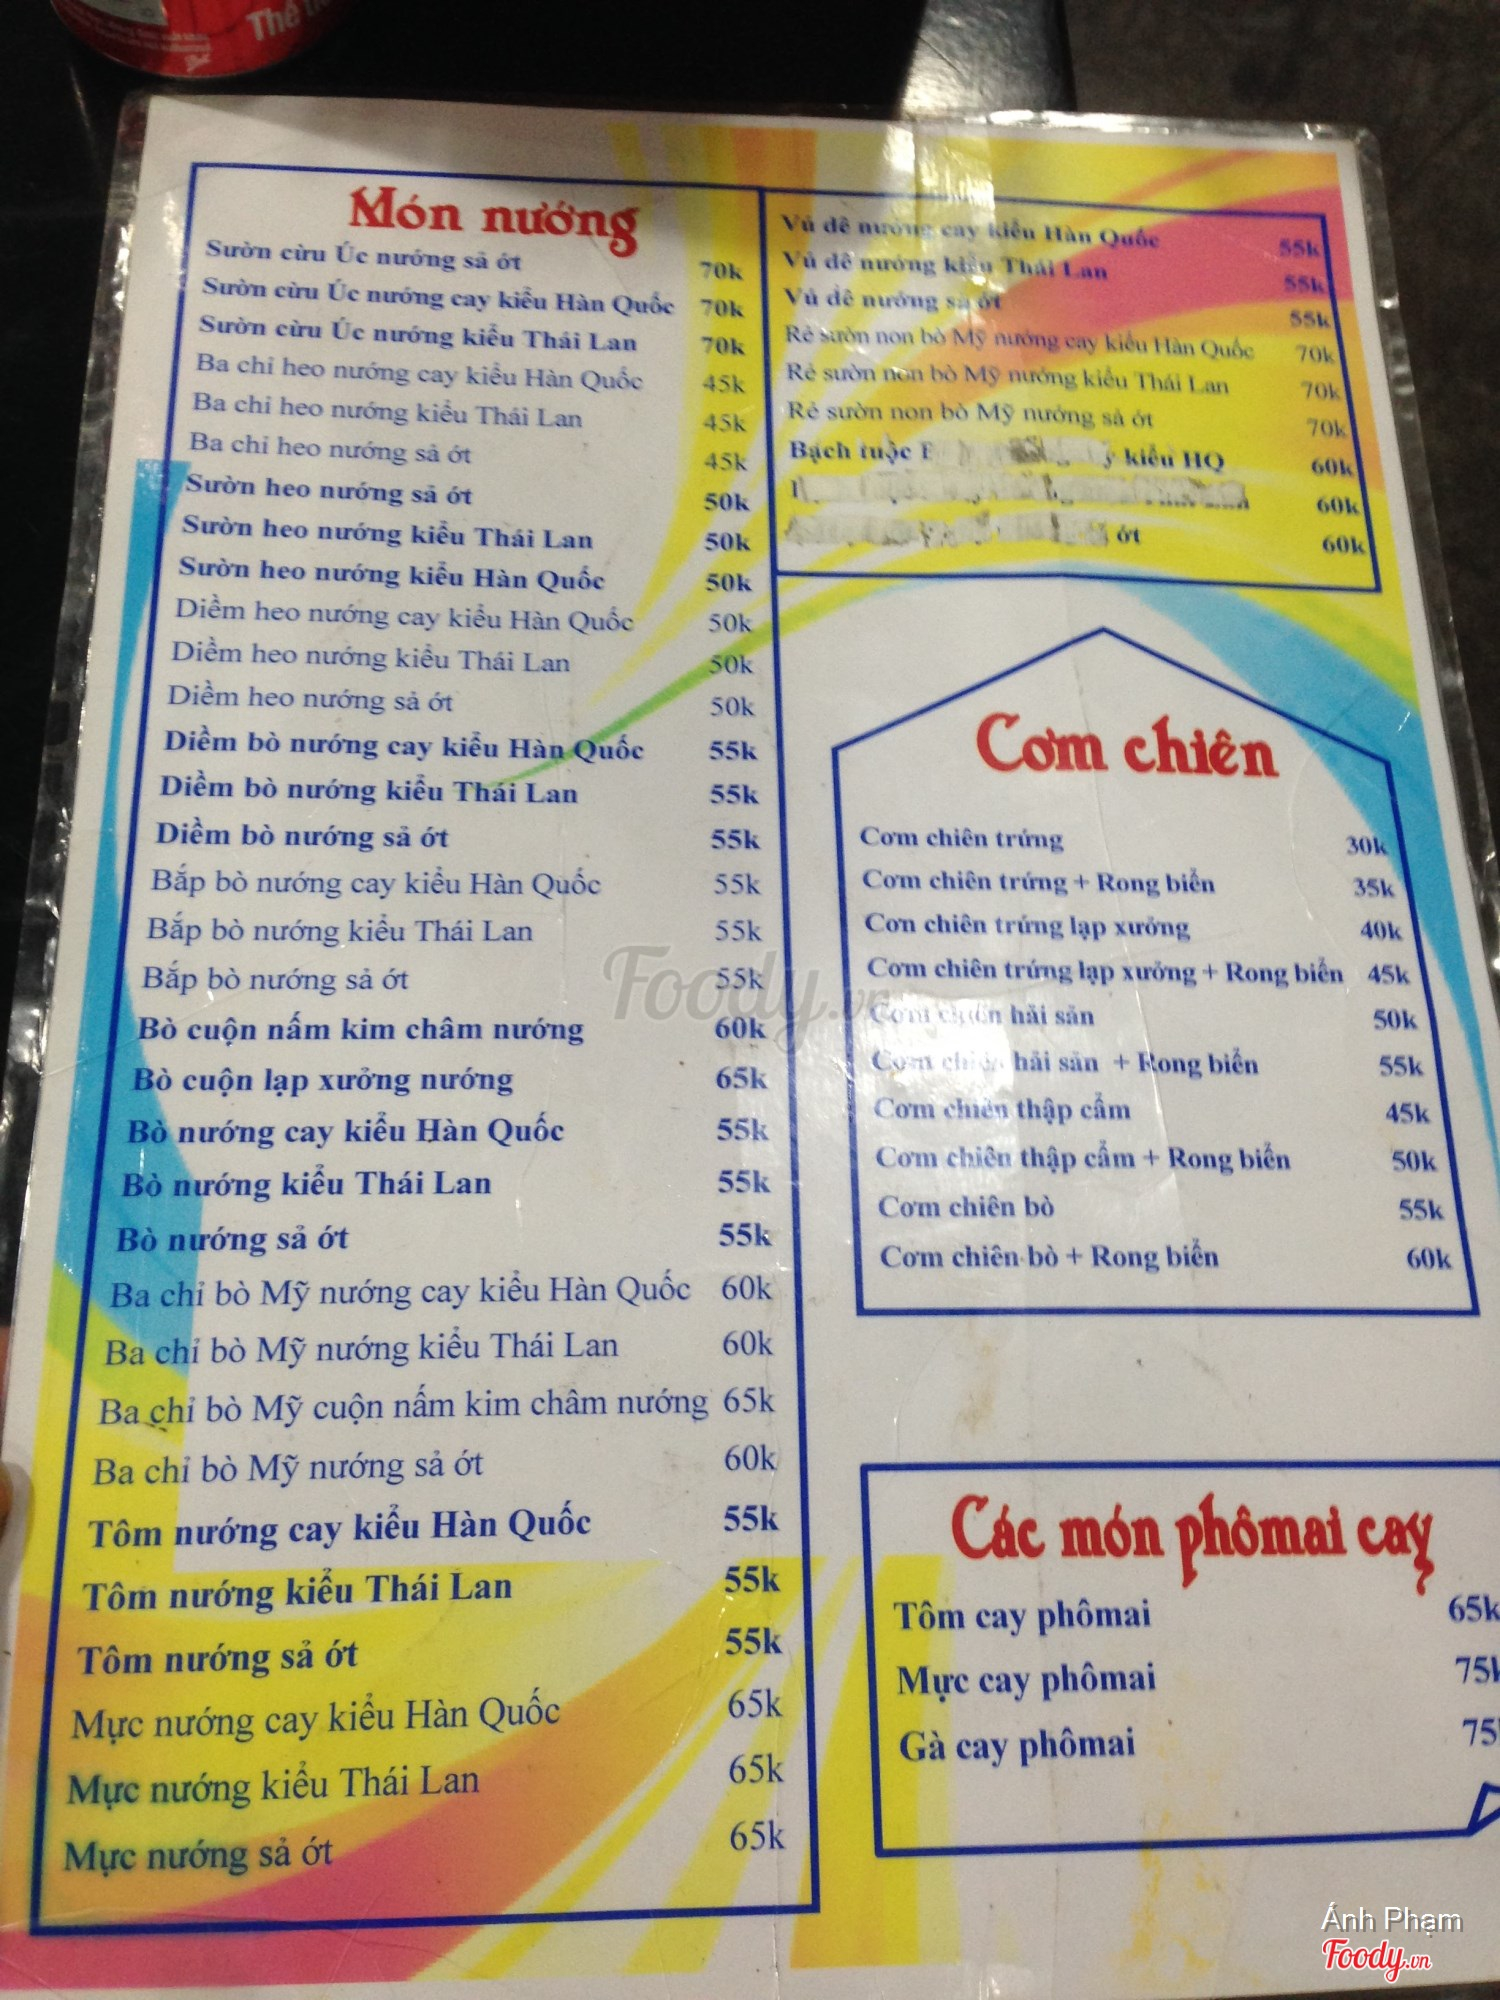 Thể
Món nướng
Sườn cừu Úc nướng sả ớt 70k
Sườn cừu Úc nướng cay kiểu Hàn Quốc 70k
Sườn cừu Úc nướng kiểu Thái Lan 70k
Ba chỉ heo nướng cay kiểu Hàn Quốc 45k
Ba chỉ heo nướng kiểu Thái Lan 45k
Ba chỉ heo nướng sả ớt 45k
Sườn heo nướng sả ớt 50k
Sườn heo nướng kiểu Thái Lan 50k
Sườn heo nướng kiểu Hàn Quốc 50k
Diềm heo nướng cay kiểu Hàn Quốc 50k
Diềm heo nướng kiểu Thái Lan 50k
Diềm heo nướng sả ớt 50k
Diềm bò nướng cay kiểu Hàn Quốc 55k
Diềm bò nướng kiểu Thái Lan 55k
Diềm bò nướng sả ớt 55k
Bắp bò nướng cay kiểu Hàn Quốc 55k
Bắp bò nướng kiểu Thái Lan 55k
Bắp bò nướng sả ớt 55k
Bò cuộn nấm kim châm nướng 60k
Bò cuộn lạp xưởng nướng 65k
Bò nướng cay kiểu Hàn Quốc 55k
Bò nướng kiểu Thái Lan 55k
Bò nướng sả ớt 55k
Ba chỉ bò Mỹ nướng cay kiểu Hàn Quốc 60k
Ba chỉ bò Mỹ nướng kiểu Thái Lan 60k
Ba chỉ bò Mỹ cuộn nấm kim châm nướng 65k
Ba chỉ bò Mỹ nướng sả ớt 60k
Tôm nướng cay kiểu Hàn Quốc 55k
Tôm nướng kiểu Thái Lan 55k
Tôm nướng sả ớt 55k
Mực nướng cay kiểu Hàn Quốc 65k
Mực nướng kiểu Thái Lan 65k
Mực nướng sả ớt 65k
Vú dê nướng cay kiểu Hàn Quốc 55k
Vú dê nướng kiểu Thái Lan 55k
Vú dê nướng sả ớt 55k
Rẻ sườn non bò Mỹ nướng cay kiểu Hàn Quốc 70k
Rẻ sườn non bò Mỹ nướng kiểu Thái Lan 70k
Rẻ sườn non bò Mỹ nướng sả ớt 70k
Bạch tuộc kiểu HQ 60k
60k
ớt 60k
Cơm chiên
Cơm chiên trứng 30k
Cơm chiên trứng + Rong biển 35k
Cơn chiên trứng lạp xưởng 40k
Cơm chiên trứng lạp xưởng + Rong biển 45k
Cơm chiên hải sản 50k
Cơm chiên hải sản + Rong biển 55k
Cơm chiên thập cẩm 45k
Cơm chiên thập cẩm + Rong biển 50k
Cơm chiên bò 55k
Cơm chiên bò + Rong biển 60k
Các món phômai cay
Tôm cay phômai 65k
Mực cay phômai 75k
Gà cay phômai 75
Foody.vn
Ánh Phạm
Foody.vn